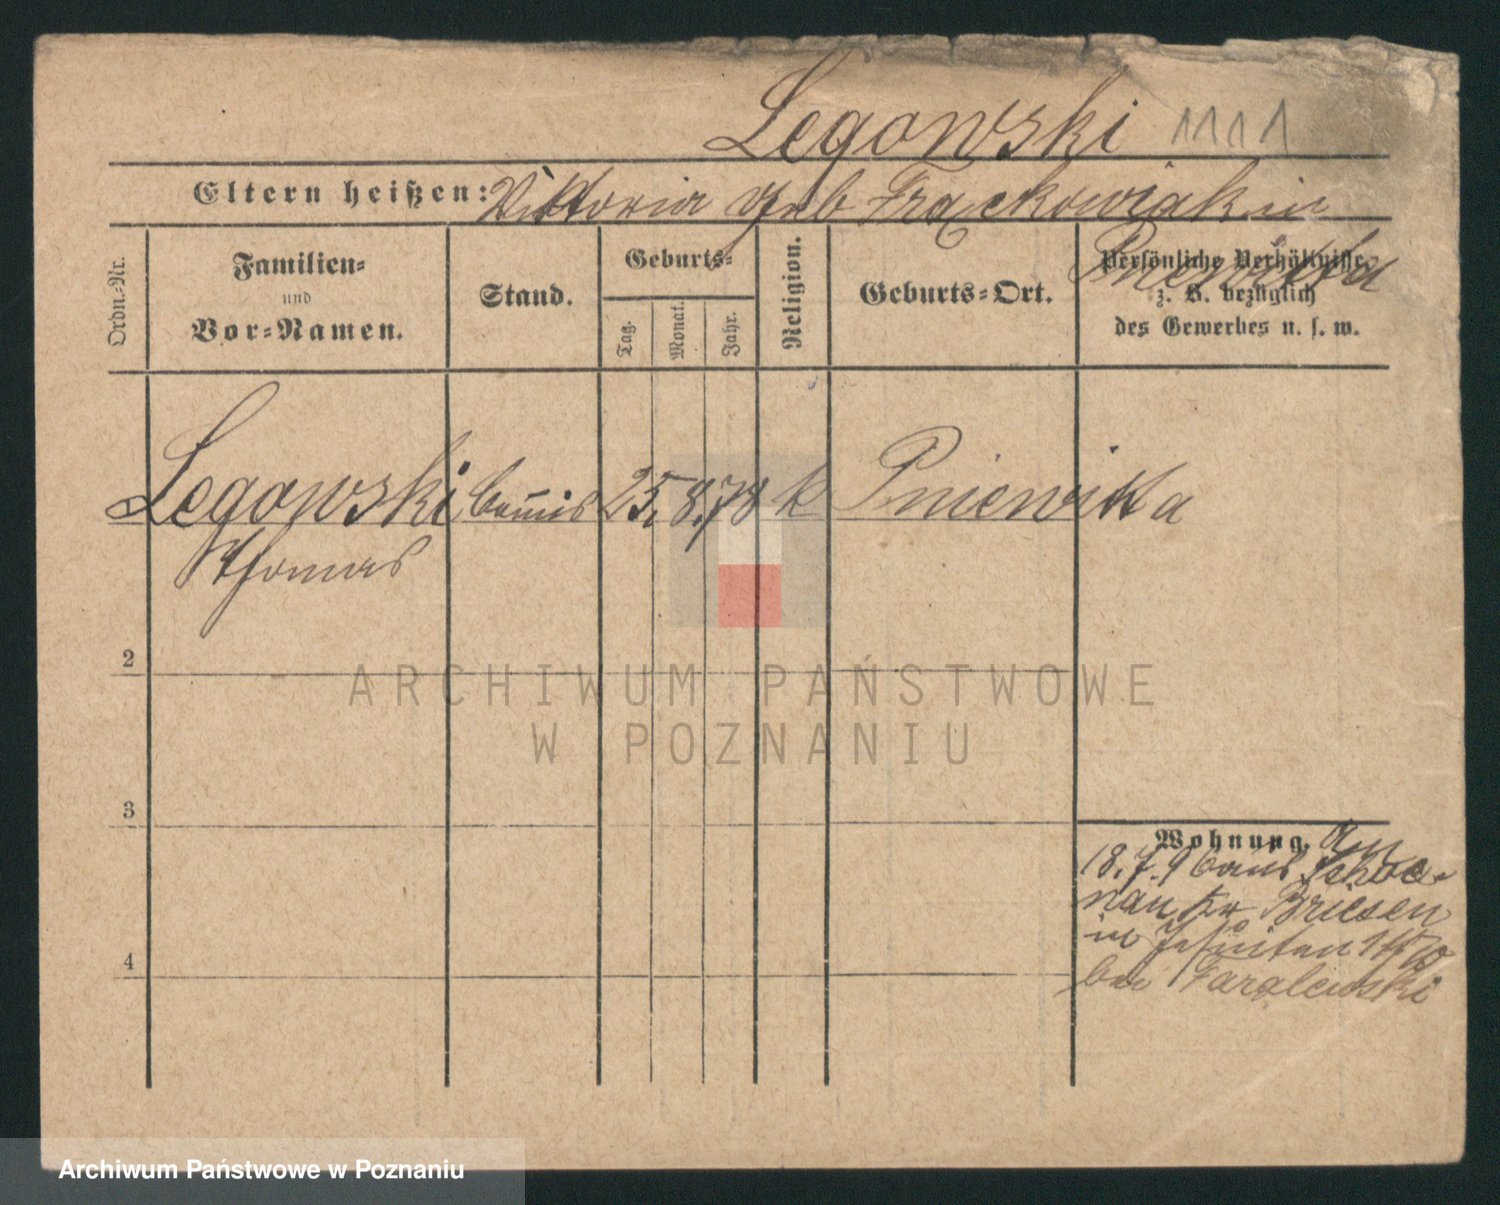 Legowski 1111
Eltern heißen: Viktoria geb Frąckowiak in
Pniewitta
Ordn.-Nr.
Familien-
und
Vor-Namen.
Stand.
Geburts-
Tag.
Monat.
Jahr.
Religion.
Geburts-Ort.
Persönliche Verhältnisse
z. B. bezüglich
des Gewerbes u. s. w.
Legowski 25. 8. 78 k Pniewitta
Thomas
2
3
4
Wohnung. an
18. 7. 9
Kr Briesen
in Jesuiten
bei
ARCHIWUM PAŃSTWOWE
W POZNANIU
Archiwum Państwowe w Poznaniu